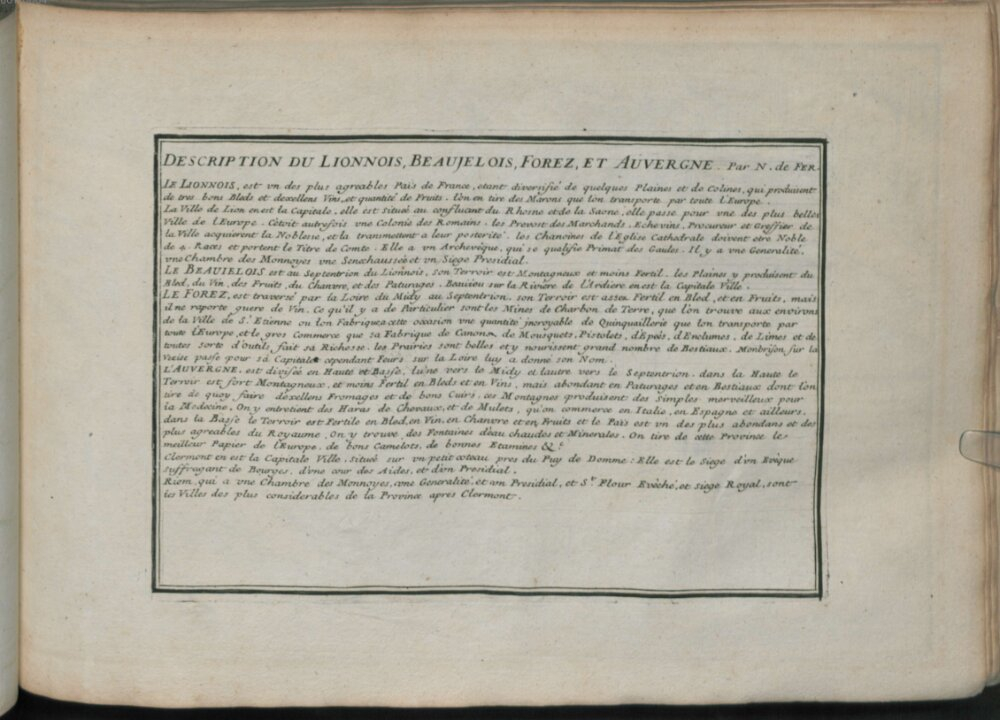 DESCRIPTION DU LIONNOIS, BEAUJELOIS, FOREZ, ET AUVERGNE. Par N. de FER.
LE LIONNOIS, est vn des plus agreables Païs de France, etant diversifié de quelques Plaines et de Colines, qui produisent
de tres bons Bleds et dexellens Vins, et quantité de Fruits. l'on en tire des Marons que l'on transporte par toute l'Europe.
La Ville de Lion en est la Capitale, elle est situeé au confluant du Rhosne et de la Saone, elle passe pour vne des plus belles
Ville de l'Europe. C'étoit autrefois vne Colonie des Romains. les Prevost des Marchands, Echevins, Procureur et Greffier de
la Ville acquierent la Noblesse, et la transmettent a leur posterité. les Chanoines de l'Eglise Cathedrale doivent etre Noble
de 4. Races et portent le Titre de Comte. Elle a vn Archevêque, qui se qualifie Primat des Gaules. Il y a vne Generalité,
vne Chambre des Monnoyes vne Senechausseé et vn Siege Presidial.
LE BEAUJELOIS est au Septentrion du Lionnois, son Terroir est Montagneux et moins Fertil. les Plaines y produisent du
Bled, du Vin, des Fruits, du Chanvre, et des Paturages. Beaujeu sur la Riviere de l'Ardiere en est la Capitale Ville.
LE FOREZ, est traversé par la Loire du Midy au Septentrion. son Terroir est assex Fertil en Bled, et en Fruits, mais
il ne raporte guere de Vin. Ce qu'il y a de Particulier sont les Mines de Charbon de Terre, que l'on trouve aux environs
de la Ville de St. Etienne ou l'on Fabrique a cette occasion vne quantité incroyable de Quinquaillerie que l'on transporte par
toute l'Europe, et le gros Commerce que sa Fabrique de Canons, de Mousquets, Pistolets, d'Epeés, d'Enclumes, de Limes et de
toutes sorte d'outils, fait sa Richesse. les Prairies sont belles et y nourissent grand nombre de Bestiaux. Monbrison sur la
Vezise passe pour sa Capitale cependant Feurs sur la Loire luy a donné son Nom.
L'AUVERGNE, est diviseé en Haute et Basse, l'une vers le Midy et l'autre vers le Septentrion. dans la Haute le
Terroir est fort Montagneux, et moins Fertil en Bleds et en Vins, mais abondant en Paturages et en Bestiaux dont l'on
tire de quoy faire dexellens Fromages et de bons Cuirs, ces Montagnes produisent des Simples merveilleux pour
la Medecine, On y entretient des Haras de Chevaux, et de Mulets, qu'on commerce en Italie, en Espagne et ailleurs.
dans la Basse le Terroir est Fertile en Bled, en Vin, en Chanvre et en Fruits et le Païs est vn des plus abondans et des
plus agreables du Royaume. On y trouve des Fontaines deau chaudes et Minerales. On tire de cette Province le
meilleur Papier de l'Europe, de bons Camelots, de bonnes Etamines &c
Clermont en est la Capitale Ville. Situeé sur vn petit coteau pres du Puy de Domme: Elle est le Siege d'vn Evêque
suffragant de Bourges, d'vne cour des Aides, et d'vn Presidial.
Riom, qui a vne Chambre des Monnoyes, vne Generalité, et vn Presidial, et St. Flour Evêché, et siege Royal, sont
les Villes des plus considerables de la Province apres Clermont.